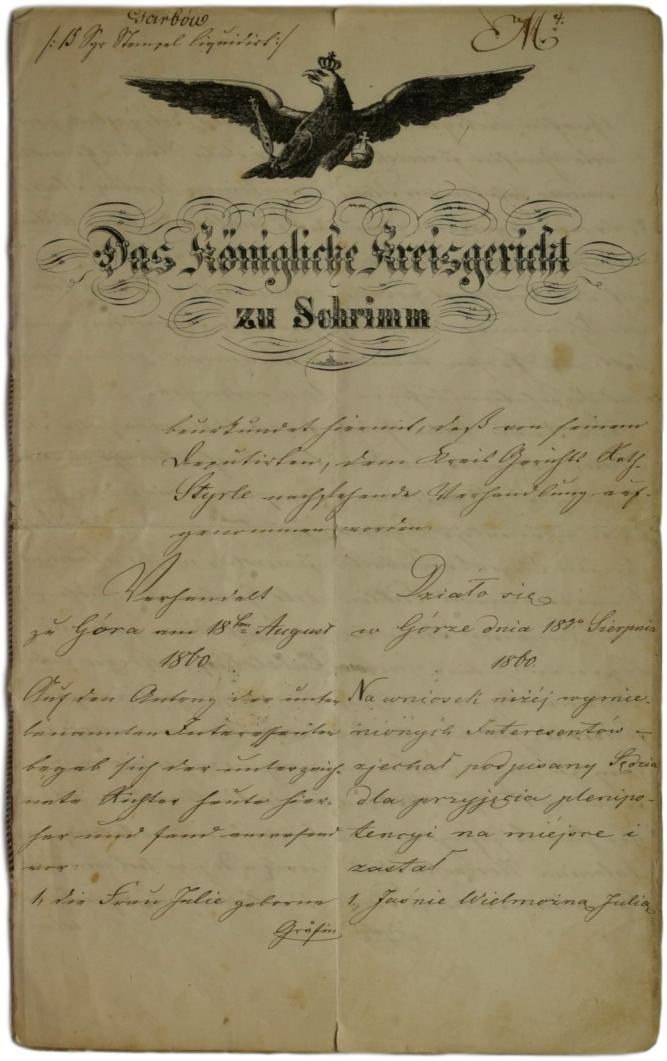 Garbów
/: 15 Sgr Stempel liquidirt :/
M. 4.
Das Königliche Kreisgericht
zu Schrimm
beurkundet hiermit, daß von seinem
Deputirten, dem Kreis Gerichts Rath
Styrle nachstehende Verhandlung auf-
genommen worden.
Verhandelt
zu Góra am 18ten August
1860.
Auf den Antrag der unten
benannten Interessenten
begab sich der unterzeich-
nete Richter heute hier-
her und fand anwesend
vor:
1, die Frau Julie geborne
Gräfin
Działo się
w Górze dnia 18go Sierpnia
1860.
Na wniosek niżéj wymie-
nionych Interesentów
zjechał podpisany Sędzia
dla przyjęcia plenipo-
tencyi na miéjsce i
zastał
1., Jaśnie Wielmożna Julia